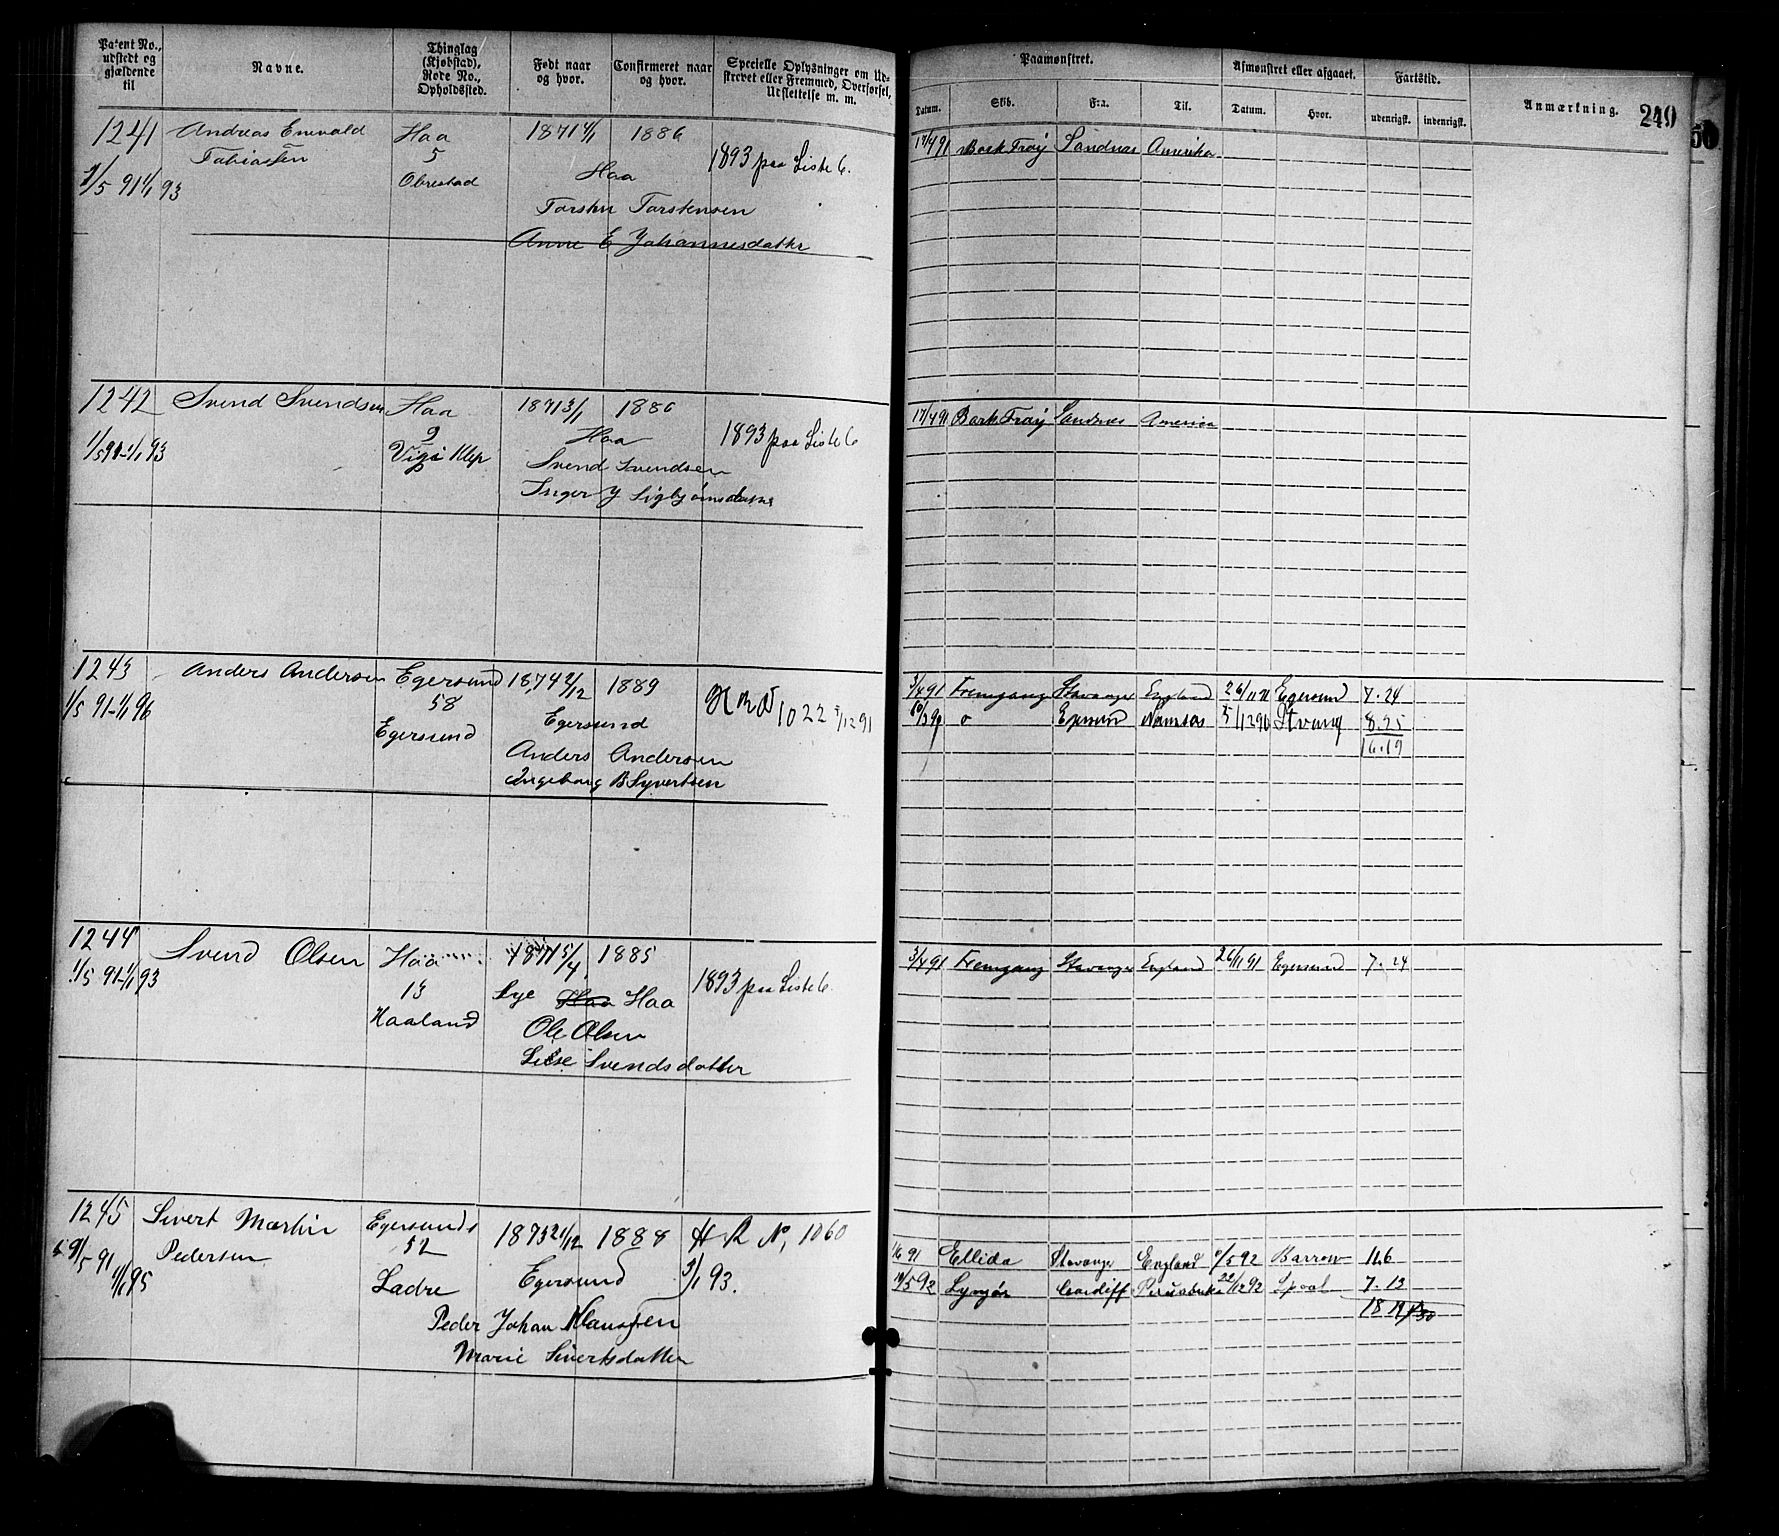 Patent No., udstedt og gjældende til
Navne.
Thinglag (Kjøbstad), Rode No., Opholdssted.
Født naar og hvor.
Confirmeret naar og hvor.
Specielle Oplysninger om Udskrevet eller Fremmed, Overførsel, Udslettelse m. m.
Paamønstret.
Datum.
Skib.
Fra.
Til.
Afmønstret eller afgaaet.
Datum.
Hvor.
Fartstid.
udenrigsk.
indenrigsk.
Anmærkning.
249
1241 Andreas Enevald Haa 1871 1886
Tobiassen 5
1/5 91 1/1 93 Obrestad Haa 1893 paa Liste 6.
Torsten Torstensen
Anne E Johannesdatter
17/4 91 Bark Frøy Sandnæs Amerika
1242 Svend Svendsen Haa 1871 3/1 1886
1/5 91-1/1 93 9 Haa 1893 paa Liste 6
Svend Svendsen
Inger Sigbjørnsdatter
17/4 91 Bark Frøy Sandnes America
1243 Anders Andersen Egersund 1874 2/12 1889
1/5 91-1/1 96 58 Egersund 1022 5/12 91
Egersund Anders Andersen
Ingeborg B Syvertsen
3/4 91 Fremgang Stavanger England 26/11 91 Egersund 7.24
8.25
16.19
1244 Svend Olsen Haa 1871 5/4 1885
1/5 91-1/1 93 13 Lye Haa Haa 1893 paa Liste 6.
Haaland Ole Olsen
Svendsdatter
3/4 91 Fremgang Stavanger England 26/11 91 Egersund 7.24
1245 Sivert Martin Egersunds 1873 21/12 1888 H R No, 1060
Pedersen 52
1/1 95 Ladre Egersund 3/1 93.
Peder Johan Klaussen
Marie Sivertsdatter
1/6 91 Ellida Stavanger England 92 Barrow
92 Lyngør Cardiff 22/12 92 7.13